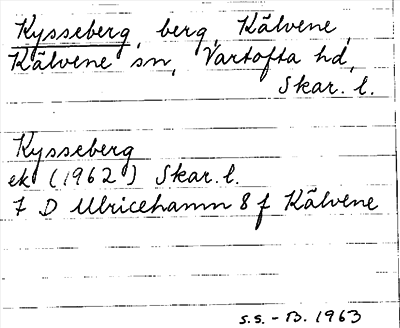 Kysseberg, berg, Kälvene,
Kälvene sn, Vartofta hd,
Skar. l.
Kysseberg
ek (1962) Skar. l.
7 D Ulricehamn 8 f Kälvene
s.s. - B. 1963